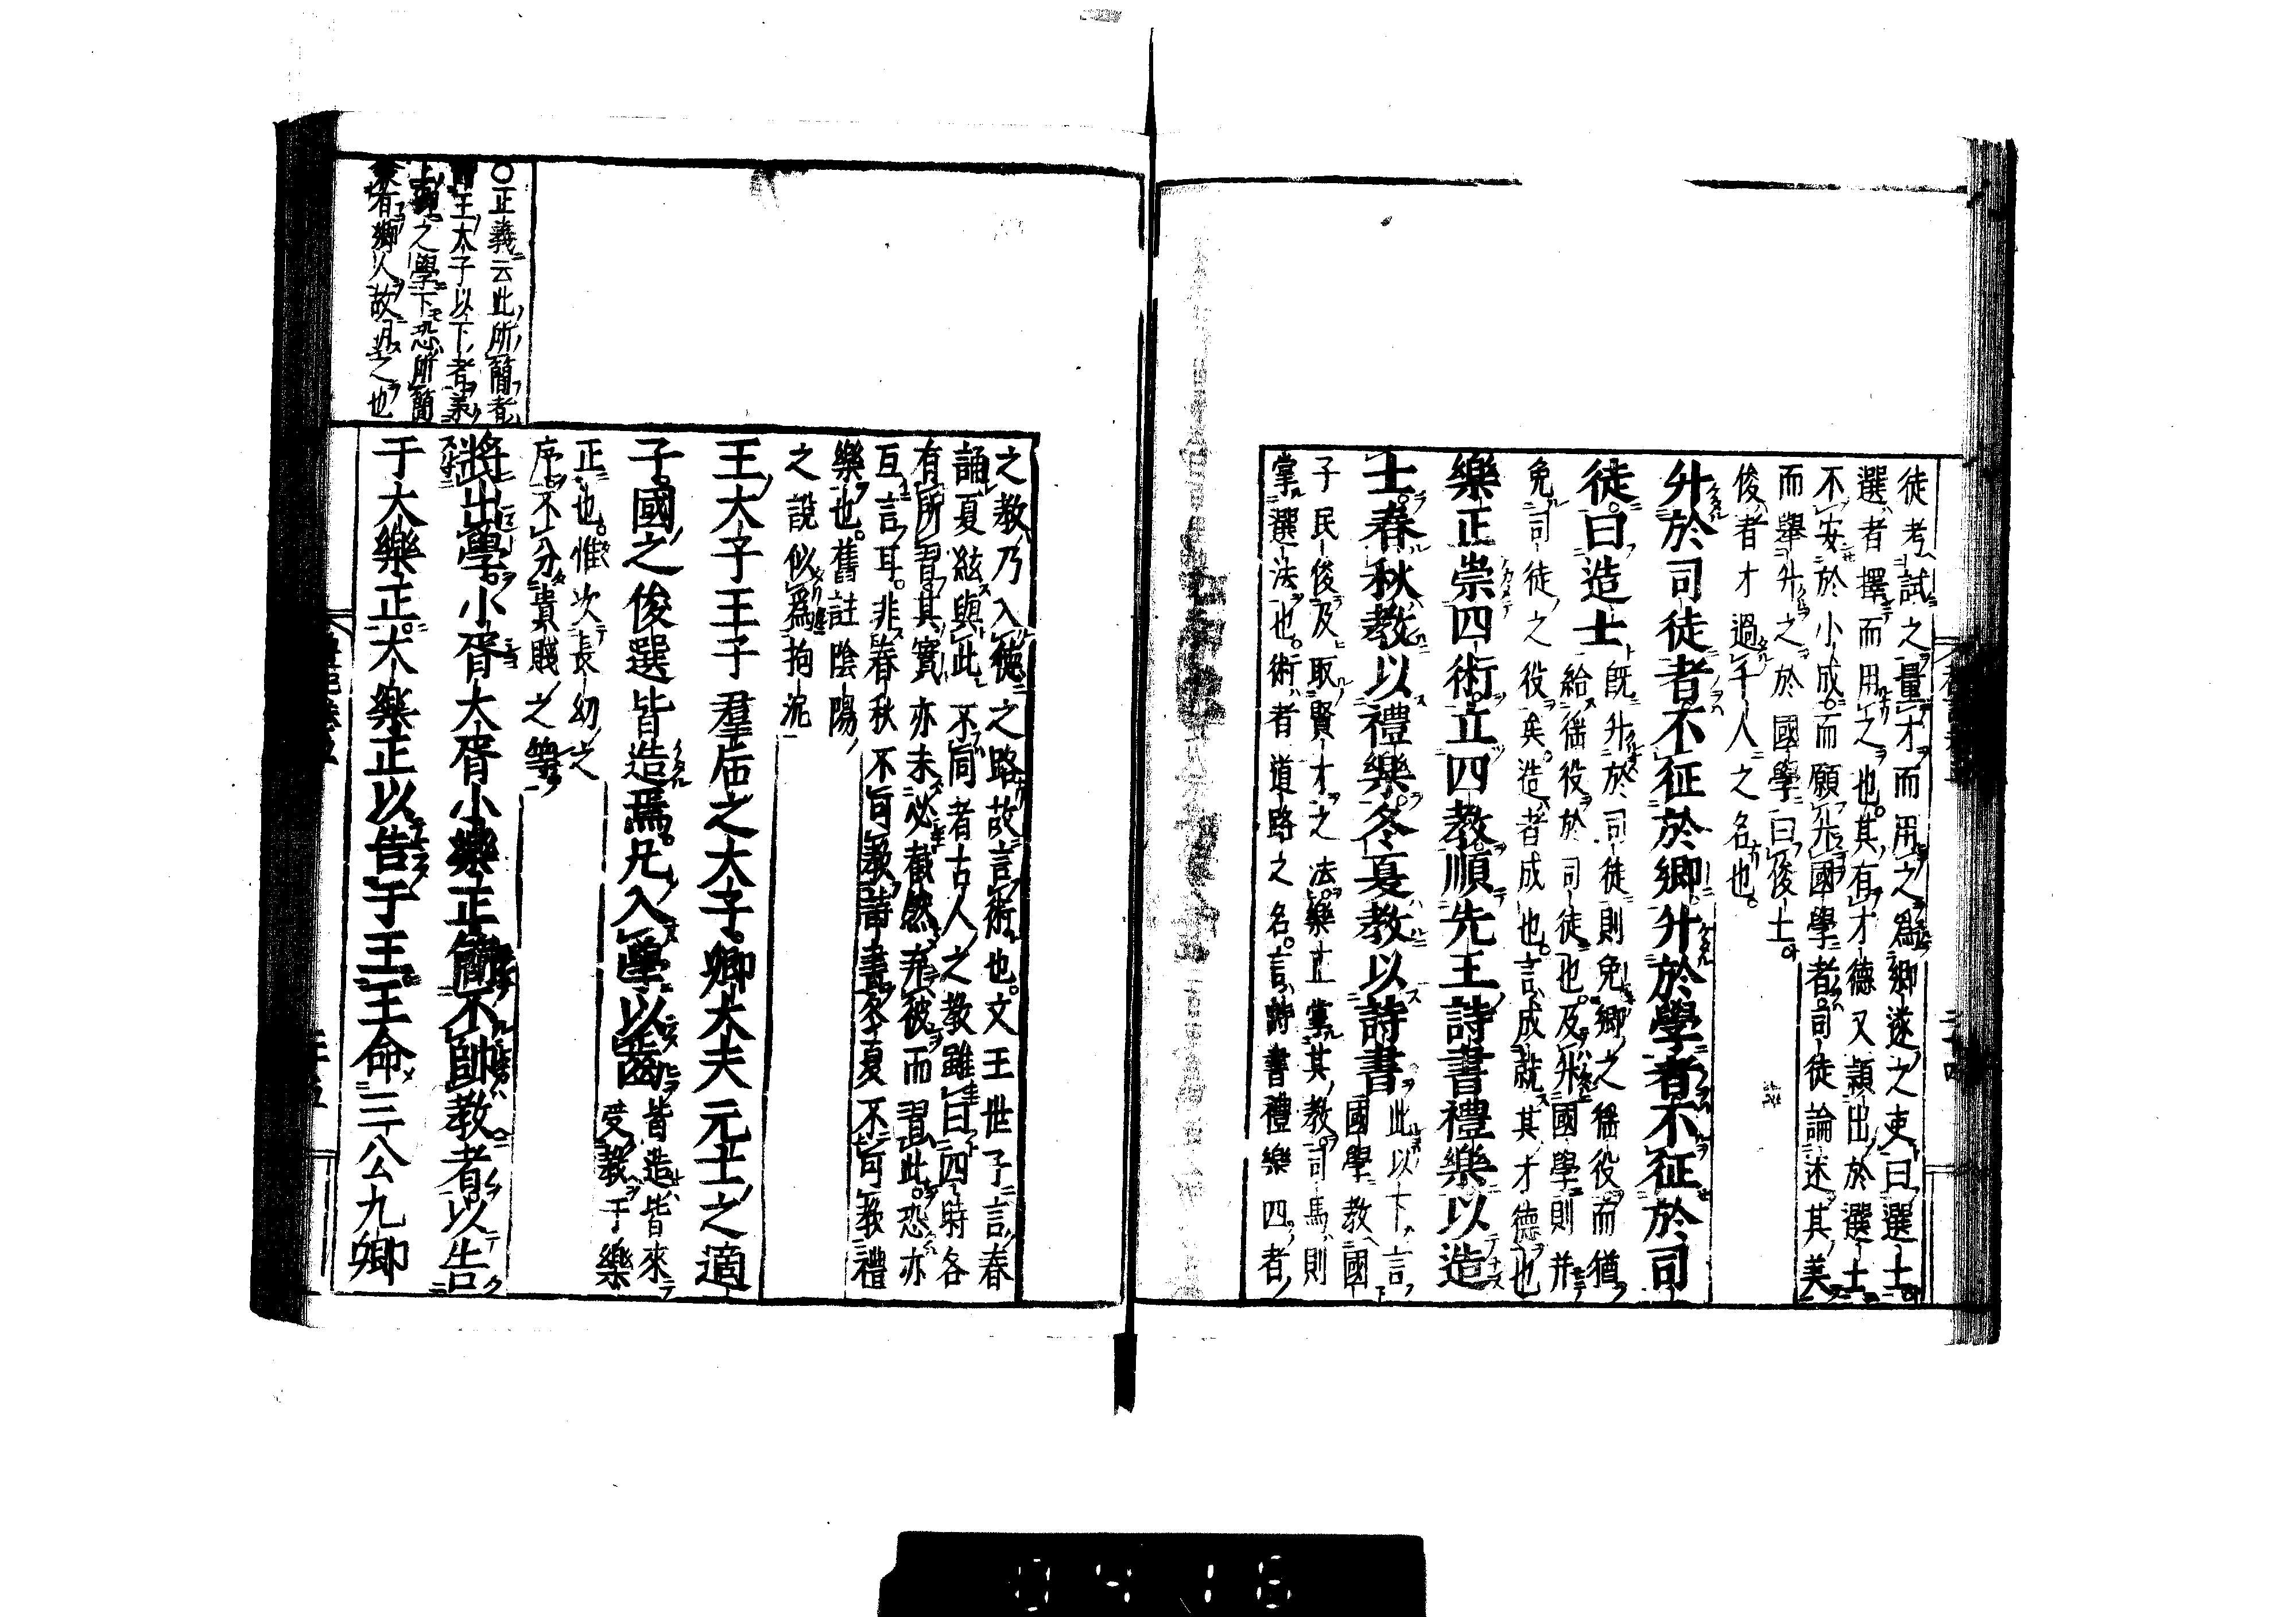 徒考試之量才而用之爲鄉遂之吏曰選士
選者擇而用之也其有才德又穎出於選士
不安於小成而願升國學者司徒論述其美
而舉升之於國學曰俊士
俊者才過千人之名也
升於司徒者不征於鄉升於學者不征於司
徒曰造士
既升於司徒則免鄉之徭役而猶
給徭役於司徒也及升國學則并
免司徒之役矣造者成也言成就其才德也
樂正崇四術立四教順先王詩書禮樂以造
士春秋教以禮樂冬夏教以詩書
此以下言
國學教國
子民俊及取賢才之法樂正掌其教司馬則
掌選法也術者道路之名言詩書禮樂四者
之教乃入德之路故言術也文王世子言春
誦夏絃與此不同者古人之教雖曰四時各
有所習其實亦未必截然弃彼而習此恐亦
互言耳非春秋不可教詩書冬夏不可教禮
樂也舊註陰陽
之說似爲拘泥
王大子王子羣后之大子卿大夫元士之適
子國之俊選皆造焉凡入學以齒
皆造皆來
受教于樂
正也惟次長幼之
序不分貴賤之等
將出學小胥大胥小樂正簡不帥教者以告
于大樂正大樂正以告于王王命三公九卿
○正義云此所簡者
謂王太子以下者
之學下恐所簡
者鄉人故凡之也
二十四
0416